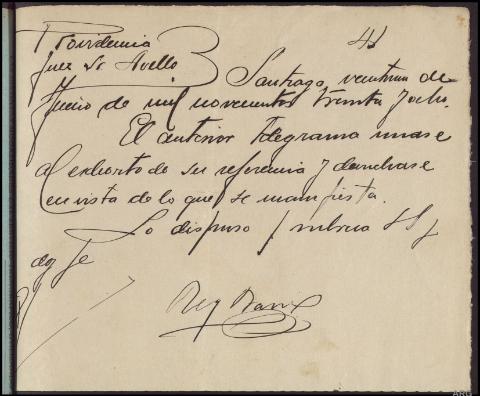 Providencia
Juez Sr Avello } Santiago, veintiuno de
Junio de mil novecientos treinta y ocho.
El anterior telegrama unase
al exhorto de su referencia y devuelvase
en vista de lo que se manifiesta.
Lo dispuso y rubrica SSª
doy fe
ARG